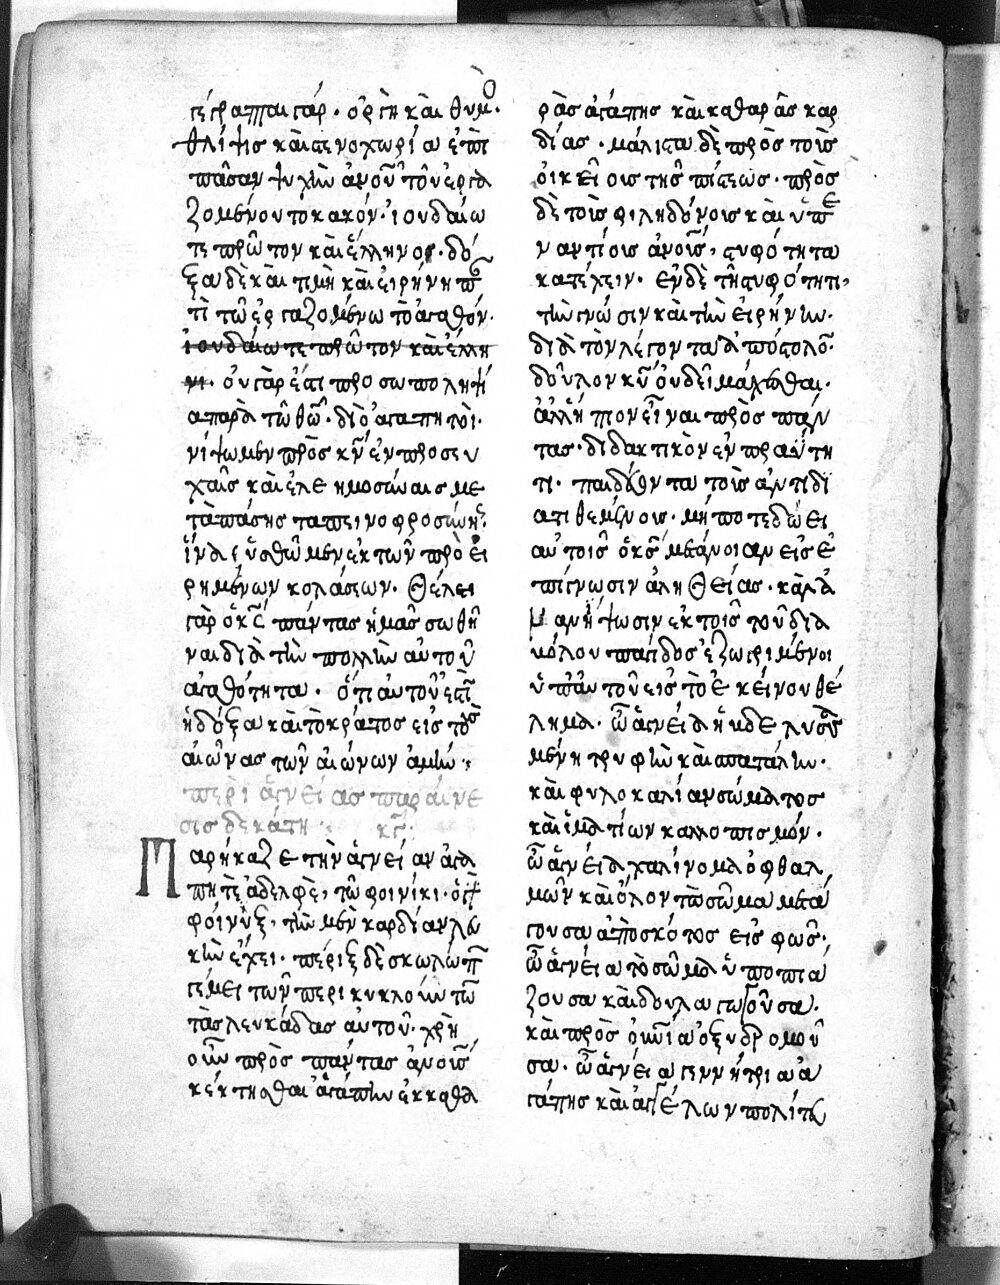 γέγραπται γάρ· ὀργὴ καὶ θυμὸ·
θλίψις καὶ στενοχωρία ἐπὶ
πᾶσαν ψυχὴν ἀνοῦ τὸν ἐργα
ζομένον τὸ κακόν· ἰουδαίω
τε πρῶτον καὶ ἕλληνος· δό
ξα δὲ καὶ τιμὴ καὶ εἰρήνη πα
τὶ τῶ ἐργαζομένω τὸ ἀγαθόν·
ἰουδαίω τε πρῶτον καὶ ἕλλη
νι· οὐ γάρ ἐστι προσωποληψί
α παρὰ τῶ θῶ· διὸ ἀγαπητοὶ·
νίψωμεν πρὸς κν ἐν προσευ
χαῖς καὶ ἐλεημοσύναις με
τὰ πάσης ταπεινοφροσύνης·
ἵνα ῥυσθῶμεν ἐκ τῶν προει
ρημένων κολάσεων· θέλει
γὰρ ὁ κς πάντας ἡμᾶς σωθῆ
ναι διὰ τὴν πολλὴν αὐτοῦ
ἀγαθότητα· ὅτι αὐτοῦ ἐστὶ
ἡ δόξα καὶ τὸ κράτος εἰς τοὺς
αἰῶνας τῶν αἰώνων ἀμήν·
περὶ ἁγνείας παραίνε
σις δεκάτη·
Παρήκαζε τὴν ἁγνείαν ἀγα
πητὲ ἀδελφὲ, τῶ φοίνικι· ὅτι
φοίνιξ, τὴν μὲν καρδίαν λευ
κὴν ἔχει· πέριξ δὲ σκωλώπων
γέμει τῶν περικυκλούντων
τὰς λευκάδας αὐτοῦ· χρὴ
οὖν πρὸς πάντας ἀνους
κεκτησθαι ἀγάπην ἐκ καθα
ρᾶς ἀγάπης καὶ καθαρᾶς καρ
δίας· μάλιστα δὲ πρὸς τοὺς
οἰκείους τῆς πίστεως· πρὸς
δὲ τοὺς φιληδόνους καὶ ὑπε
ναντίους ἀνους, στυφότητα
κατέχειν· ἐν δὲ τῆ στυφότητι,
τὴν γνῶσιν καὶ τὴν εἰρήνην·
διὰ τὸν λέγοντα ἀπόστολον·
δοῦλον κυ οὐ δεῖ μάχεσθαι·
ἀλλ' ἤπιον εἶναι πρὸς πάν
τας· διδακτικὸν ἐν πραύτη
τι· παιδεύοντα τοὺς ἀντιδι
ατιθεμένους· μήποτε δώει
αὐτοῖς ὁ κς μετάνοιαν εἰς ἐ
πίγνωσιν ἀληθείας· καὶ ἀ
νανήψωσιν ἐκ τοῖς τοῦ δια
βόλου παγίδος ἐζωγριμένοι
ὑπ' αὐτοῦ εἰς τὸ ἐκείνου θέ
λημα· ὦ ἁγνεία ἡ βδελυσσο
μένη τρυφὴν καὶ σπατάλην·
καὶ φυλοκαλίαν σώματος
καὶ ἱματίων καλλοπισμόν·
ὦ ἁγνεία χαλίνομα ὀφθαλ
μῶν καὶ ὅλον τὸ σῶμα μετά
γουσα ἀπὸ σκότος εἰς φῶς·
ὦ ἁγνεία τὸ σῶμα ὑποπιά
ζουσα καὶ δουλαγωγοῦσα·
καὶ πρὸς οὐνία ὀξυδρομοῦ
σα· ὦ ἁγνεία γεννήτρια ἀ
γάπης καὶ ἀγγέλων πολίτευ